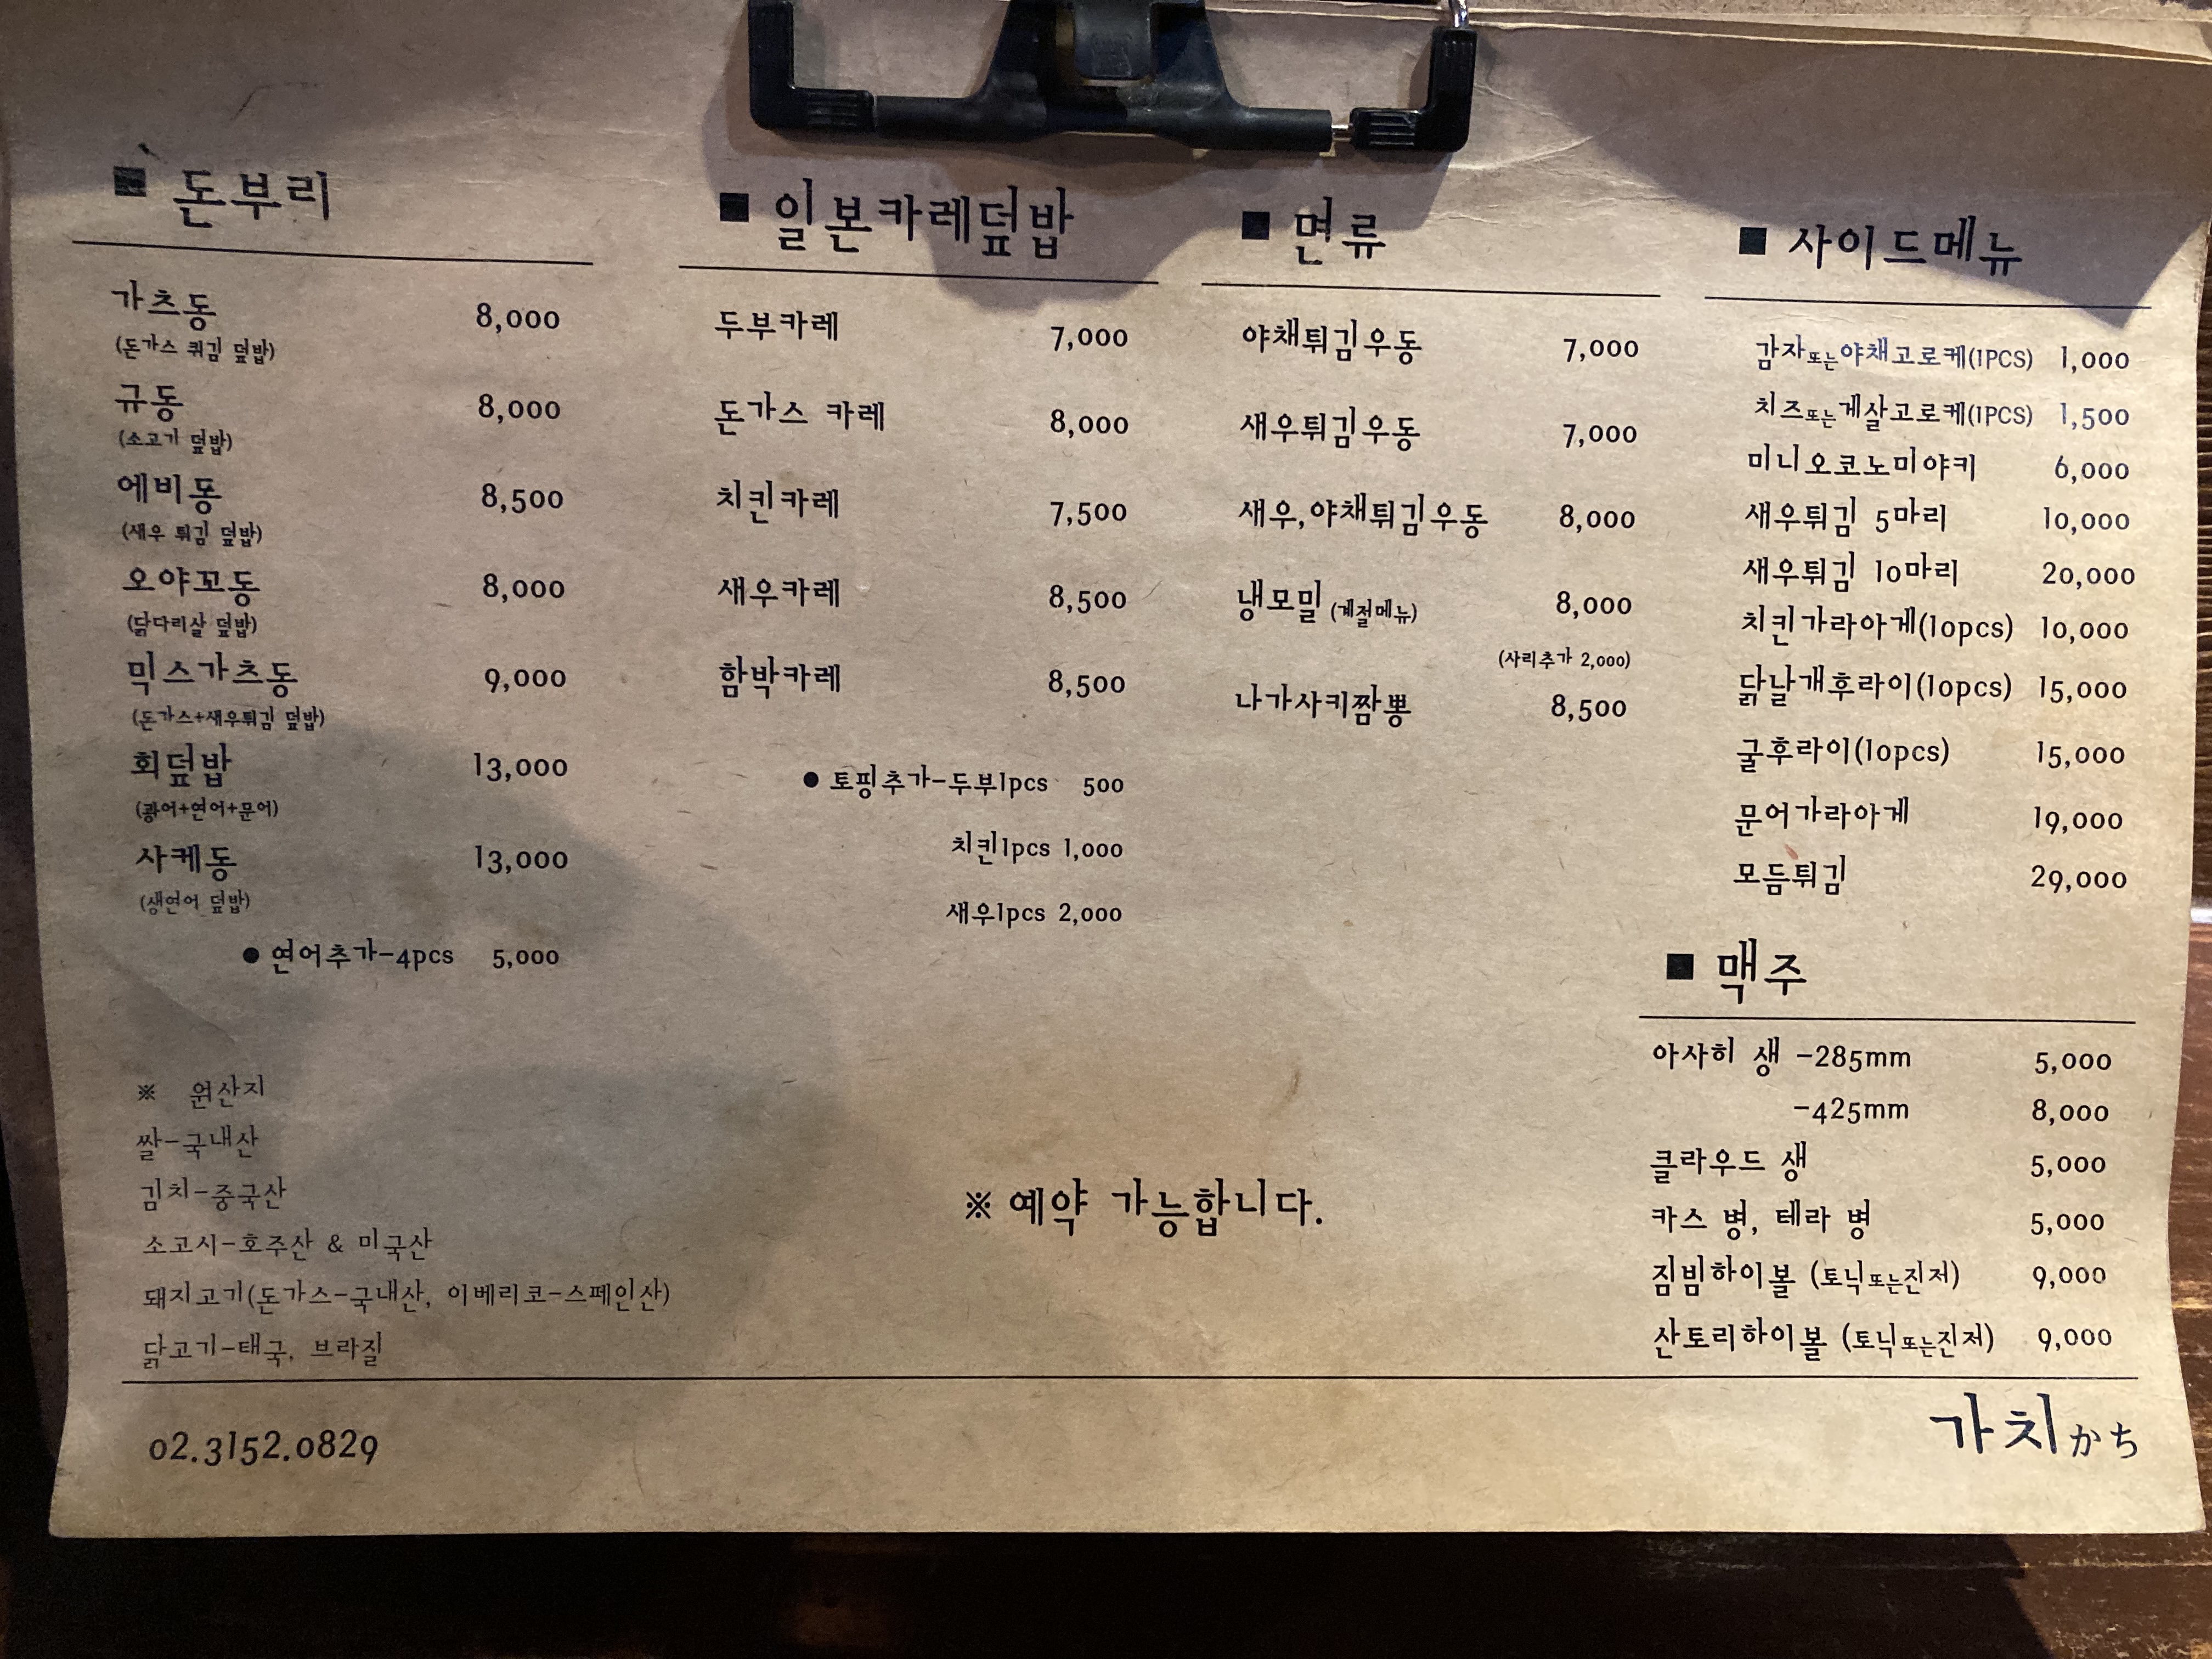 ■ 돈부리
가츠동 8,000
(돈가스 튀김 덮밥)
규동 8,000
(소고기 덮밥)
에비동 8,500
(새우 튀김 덮밥)
오야꼬동 8,000
(닭다리살 덮밥)
믹스가츠동 9,000
(돈가스+새우튀김 덮밥)
회덮밥 13,000
(광어+연어+문어)
사케동 13,000
(생연어 덮밥)
● 연어추가-4pcs 5,000
■ 일본카레덮밥
두부카레 7,000
돈가스 카레 8,000
치킨카레 7,500
새우카레 8,500
함박카레 8,500
● 토핑추가-두부1pcs 500
치킨1pcs 1,000
새우1pcs 2,000
■ 면류
야채튀김우동 7,000
새우튀김우동 7,000
새우,야채튀김우동 8,000
냉모밀 (계절메뉴) 8,000
(사리추가 2,000)
나가사키짬뽕 8,500
■ 사이드메뉴
감자또는야채고로케(1PCS) 1,000
치즈또는게살고로케(1PCS) 1,500
미니오코노미야키 6,000
새우튀김 5마리 10,000
새우튀김 10마리 20,000
치킨가라아게(10pcs) 10,000
닭날개후라이(10pcs) 15,000
굴후라이(10pcs) 15,000
문어가라아게 19,000
모듬튀김 29,000
■ 맥주
아사히 생 -285mm 5,000
-425mm 8,000
클라우드 생 5,000
카스 병, 테라 병 5,000
짐빔하이볼 (토닉또는진저) 9,000
산토리하이볼 (토닉또는진저) 9,000
※ 원산지
쌀-국내산
김치-중국산
소고시-호주산 & 미국산
돼지고기(돈가스-국내산, 이베리코-스페인산)
닭고기-태국, 브라질
※ 예약 가능합니다.
02.3152.0829
가치かち